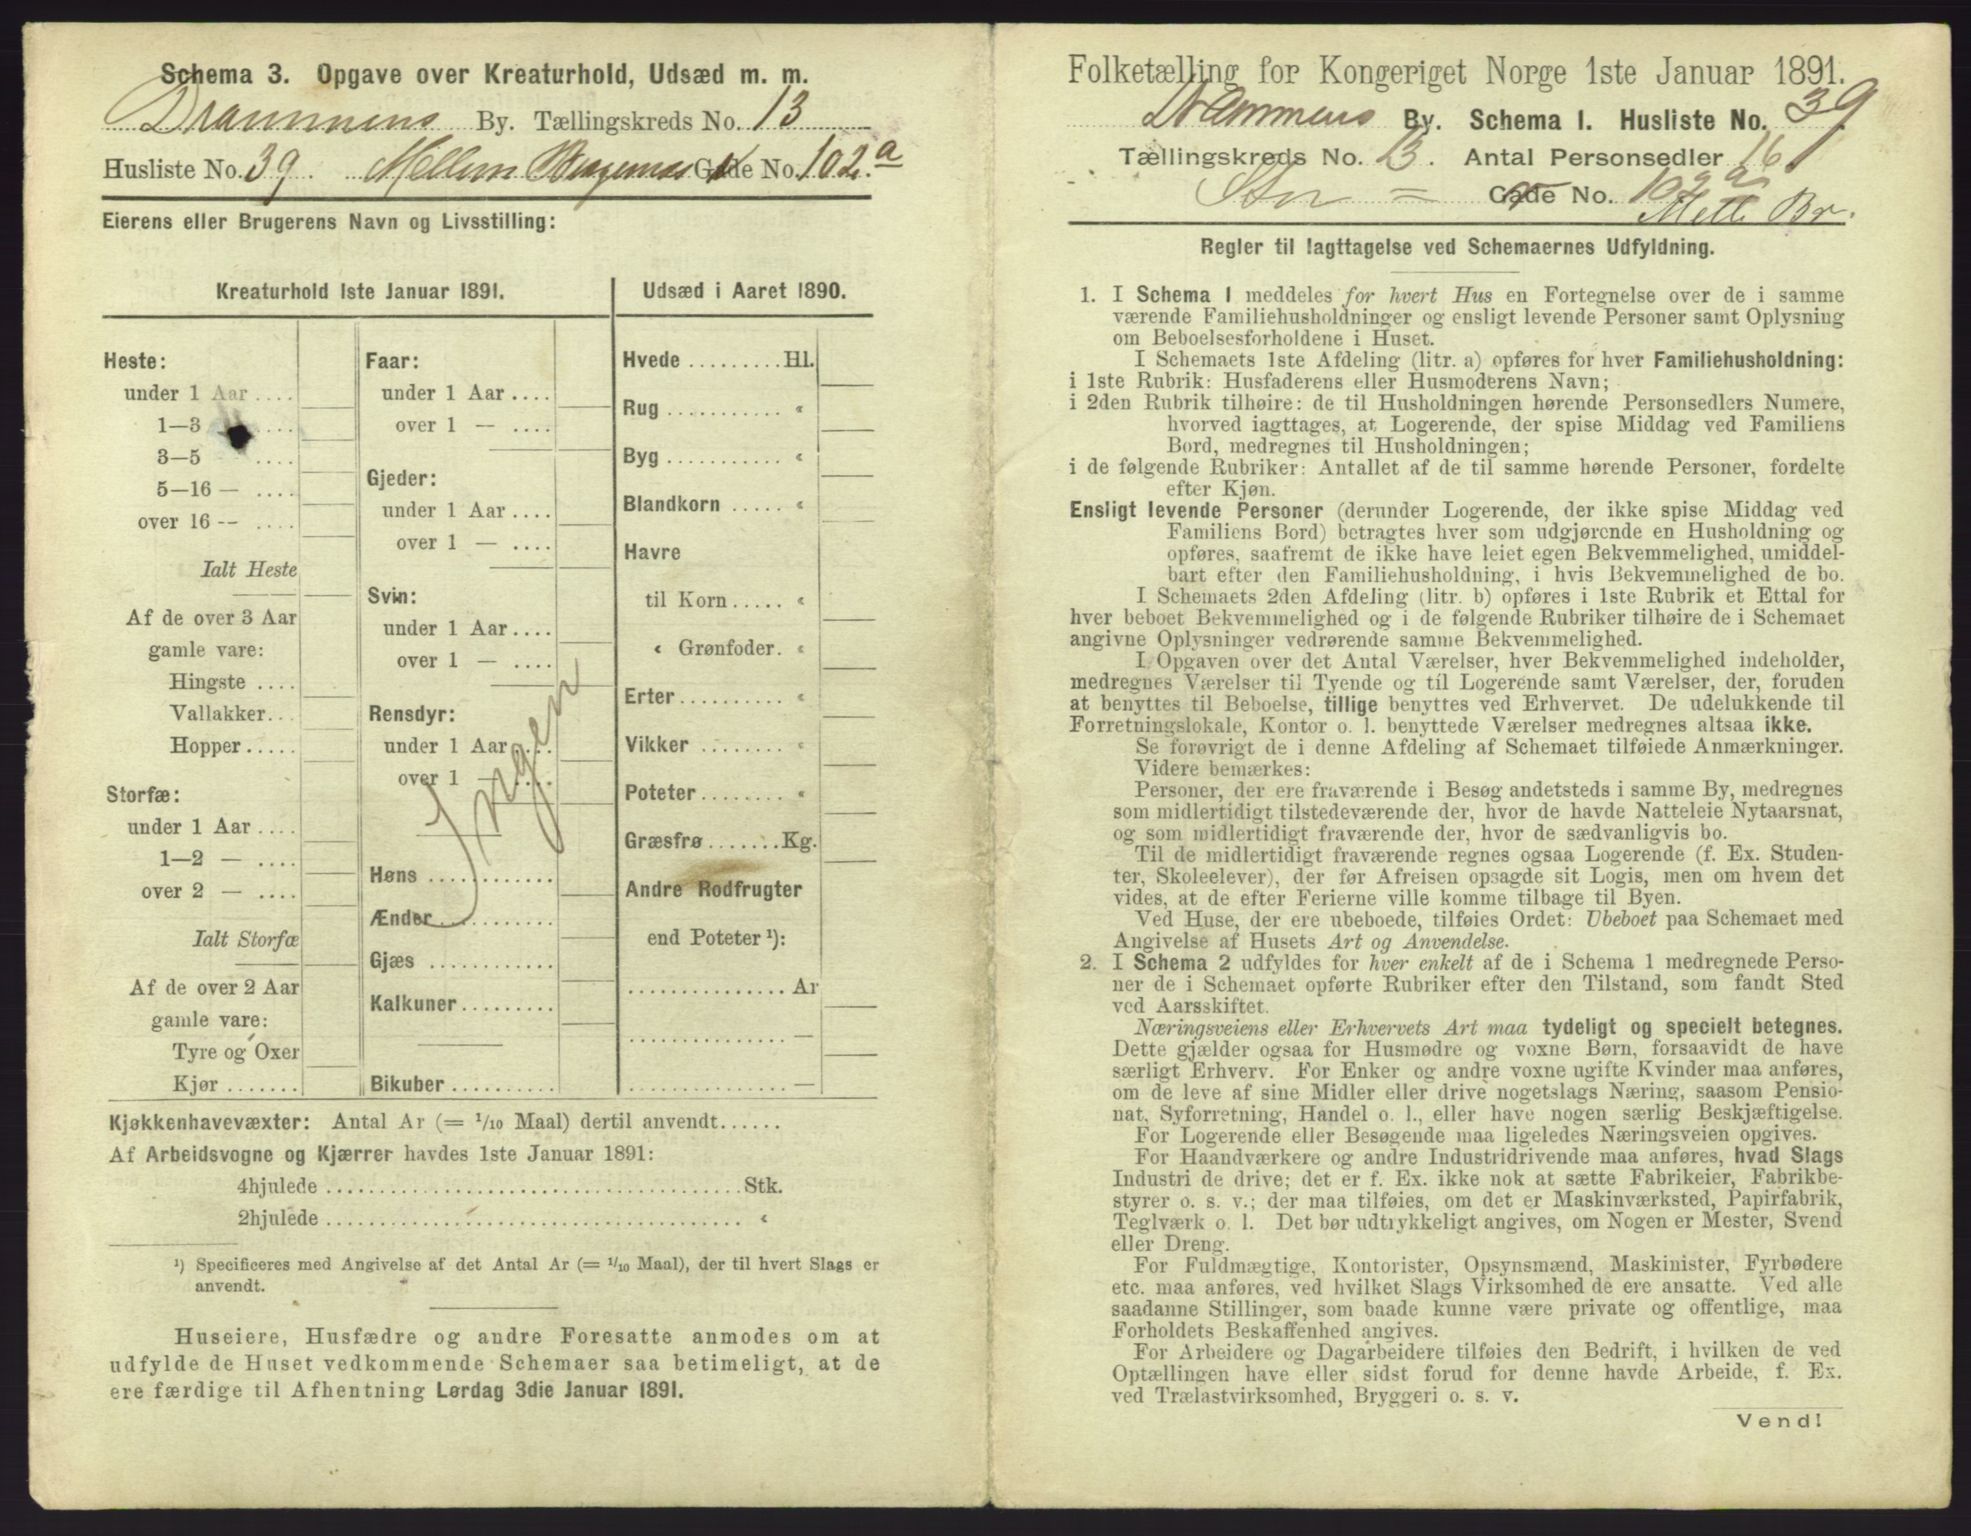 Schema 3. Opgave over Kreaturhold, Udsæd m. m.
Drammens By. Tællingskreds No. 13
Husliste No. 39. Mellem Bragernæs Gade No. 102 a
Eierens eller Brugerens Navn og Livsstilling:
Kreaturhold 1ste Januar 1891.
Heste:
under 1 Aar ....
1—3 ....
3—5 ....
5—16 — ....
over 16 -- ....
Ialt Heste
Af de over 3 Aar
gamle vare:
Hingste ....
Vallakker...
Hopper .....
Storfæ:
under 1 Aar ....
1—2 — ....
over 2 — ....
Ialt Storfæ
Af de over 2 Aar
gamle vare:
Tyre og Oxer
Kjør .......
Faar:
under 1 Aar ....
over 1 — ....
Gjeder:
under 1 Aar ....
over 1 — ....
Svin:
under 1 Aar ....
over 1 — ....
Rensdyr:
under 1 Aar ....
over 1 — ....
Ingen
Høns ............
Ænder ..........
Gjæs ............
Kalkuner.........
Bikuber ..........
Udsæd i Aaret 1890.
Hvede .........Hl.
Rug ........... «
Byg ............ «
Blandkorn ..... «
Havre
til Korn..... «
« Grønfoder. «
Erter .......... «
Vikker ........ «
Poteter ........ «
Græsfrø .......Kg.
Andre Rodfrugter
end Poteter ¹):
............... Ar
............... —
............... —
Kjøkkenhavevæxter: Antal Ar (= 1/10 Maal) dertil anvendt......
Af Arbeidsvogne og Kjærrer havdes 1ste Januar 1891:
4hjulede ........................................Stk.
2hjulede ........................................ «
¹) Specificeres med Angivelse af det Antal Ar (= 1/10 Maal), der til hvert Slags er
anvendt.
Huseiere, Husfædre og andre Foresatte anmodes om at
udfylde de Huset vedkommende Schemaer saa betimeligt, at de
ere færdige til Afhentning Lørdag 3die Januar 1891.
Folketælling for Kongeriget Norge 1ste Januar 1891.
Drammens By. Schema 1. Husliste No. 39
Tællingskreds No. 13. Antal Personsedler 16
Gade No. 102 a
Mell. Br.
Regler til Iagttagelse ved Schemaernes Udfyldning.
1. I Schema 1 meddeles for hvert Hus en Fortegnelse over de i samme
værende Familiehusholdninger og ensligt levende Personer samt Oplysning
om Beboelsesforholdene i Huset.
I Schemaets 1ste Afdeling (litr. a) opføres for hver Familiehusholdning:
i 1ste Rubrik: Husfaderens eller Husmoderens Navn;
i 2den Rubrik tilhøire: de til Husholdningen hørende Personsedlers Numere,
hvorved iagttages, at Logerende, der spise Middag ved Familiens
Bord, medregnes til Husholdningen;
i de følgende Rubriker: Antallet af de til samme hørende Personer, fordelte
efter Kjøn.
Ensligt levende Personer (derunder Logerende, der ikke spise Middag ved
Familiens Bord) betragtes hver som udgjørende en Husholdning og
opføres, saafremt de ikke have leiet egen Bekvemmelighed, umiddel-
bart efter den Familiehusholdning, i hvis Bekvemmelighed de bo.
I Schemaets 2den Afdeling (litr. b) opføres i 1ste Rubrik et Ettal for
hver beboet Bekvemmelighed og i de følgende Rubriker tilhøire de i Schemaet
angivne Oplysninger vedrørende samme Bekvemmelighed.
I Opgaven over det Antal Værelser, hver Bekvemmelighed indeholder,
medregnes Værelser til Tyende og til Logerende samt Værelser, der, foruden
at benyttes til Beboelse, tillige benyttes ved Erhvervet. De udelukkende til
Forretningslokale, Kontor o. l. benyttede Værelser medregnes altsaa ikke.
Se forøvrigt de i denne Afdeling af Schemaet tilføiede Anmærkninger.
Videre bemærkes:
Personer, der ere fraværende i Besøg andetsteds i samme By, medregnes
som midlertidigt tilstedeværende der, hvor de havde Natteleie Nytaarsnat,
og som midlertidigt fraværende der, hvor de sædvanligvis bo.
Til de midlertidigt fraværende regnes ogsaa Logerende (f. Ex. Studen-
ter, Skoleelever), der før Afreisen opsagde sit Logis, men om hvem det
vides, at de efter Ferierne ville komme tilbage til Byen.
Ved Huse, der ere ubeboede, tilføies Ordet: Ubeboet paa Schemaet med
Angivelse af Husets Art og Anvendelse.
2. I Schema 2 udfyldes for hver enkelt af de i Schema 1 medregnede Perso-
ner de i Schemaet opførte Rubriker efter den Tilstand, som fandt Sted
ved Aarsskiftet.
Næringsveiens eller Erhvervets Art maa tydeligt og specielt betegnes.
Dette gjælder ogsaa for Husmødre og voxne Børn, forsaavidt de have
særligt Erhverv. For Enker og andre voxne ugifte Kvinder maa anføres,
om de leve af sine Midler eller drive nogetslags Næring, saasom Pensio-
nat, Syforretning, Handel o. l., eller have nogen særlig Beskjæftigelse.
For Logerende eller Besøgende maa ligeledes Næringsveien opgives.
For Haandværkere og andre Industridrivende maa anføres, hvad Slags
Industri de drive; det er f. Ex. ikke nok at sætte Fabrikeier, Fabrikbe-
styrer o. s. v.; der maa tilføies, om det er Maskinværksted, Papirfabrik,
Teglværk o. l. Det bør udtrykkeligt angives, om Nogen er Mester, Svend
eller Dreng.
For Fuldmægtige, Kontorister, Opsynsmænd, Maskinister, Fyrbødere
etc. maa anføres, ved hvilket Slags Virksomhed de ere ansatte. Ved alle
saadanne Stillinger, som baade kunne være private og offentlige, maa
Forholdets Beskaffenhed angives.
For Arbeidere og Dagarbeidere tilføies den Bedrift, i hvilken de ved
Optællingen have eller sidst forud for denne havde Arbeide, f. Ex.
ved Trælastvirksomhed, Bryggeri o. s. v.
Vend!